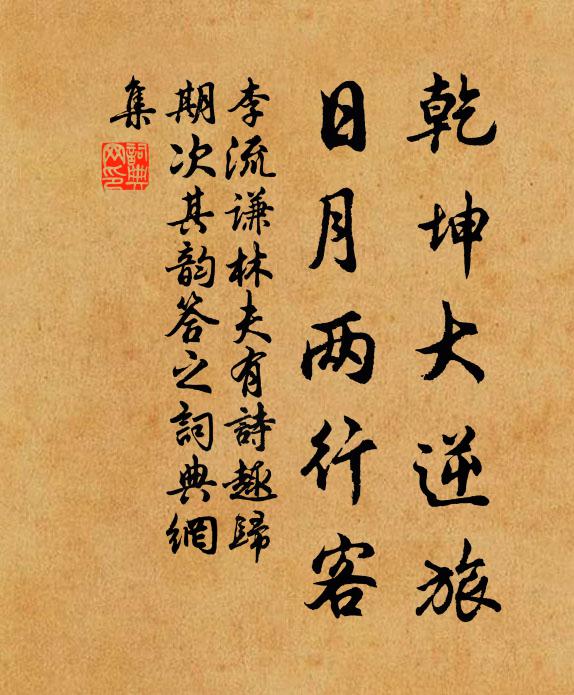 乾坤大逆旅
日月两行客
李流谦林夫有詩趣歸
期次其韵答之詞典網
集
詞典網印